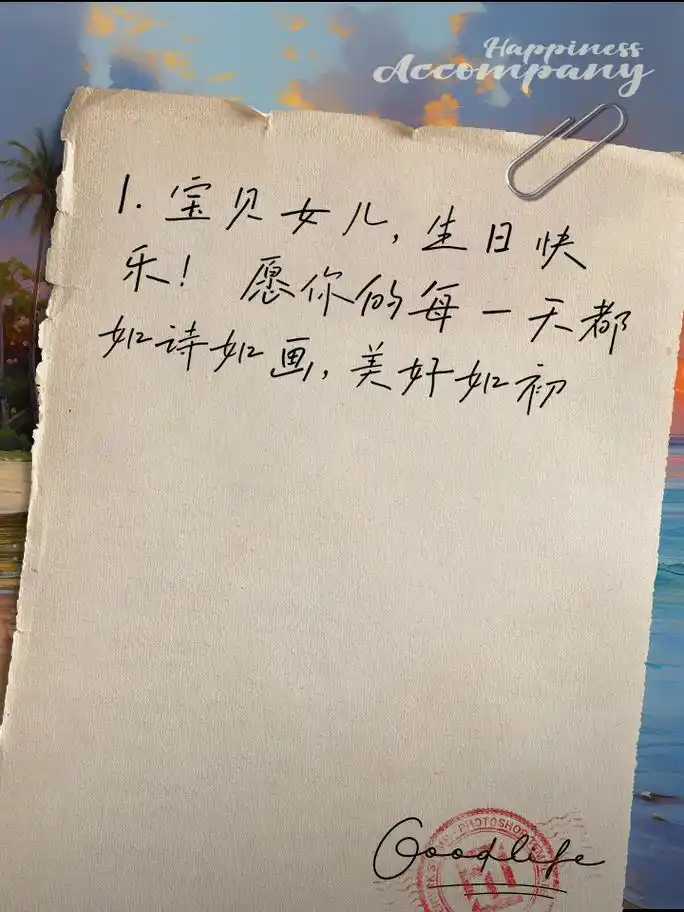 Happiness
Accompany
1. 宝贝女儿, 生日快
乐! 愿你的每一天都
如诗如画, 美好如初
PHOTOSHOP
Goodlife